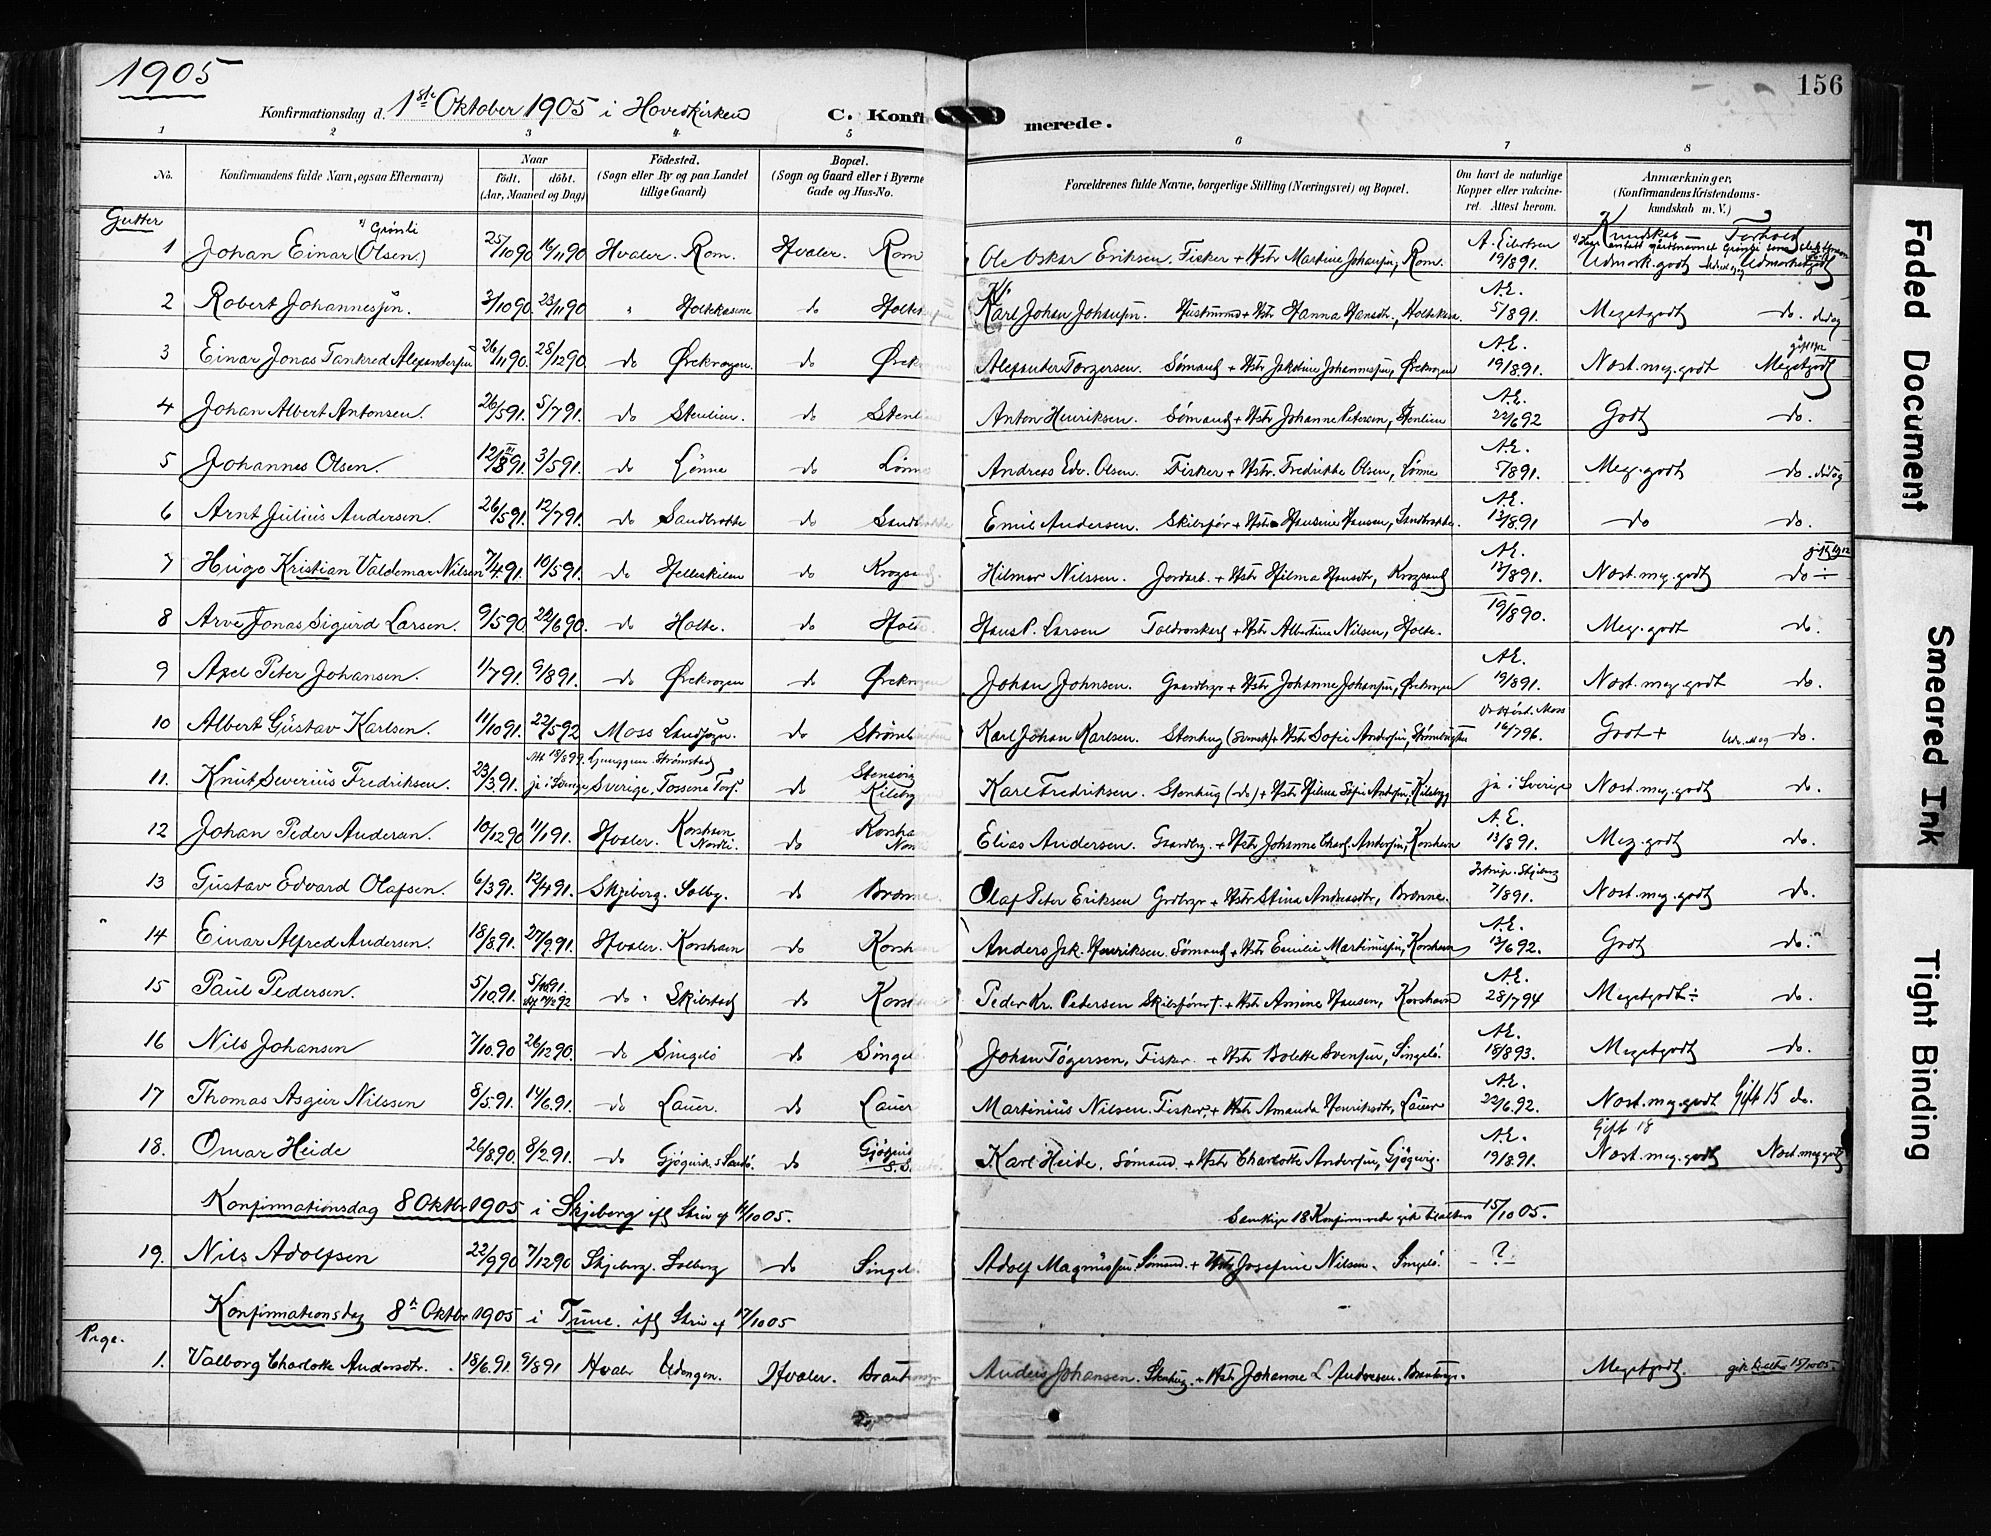 1905
156
Konfirmationsdag d. 1ste Oktober 1905 i Hovedkirken
C. Konfirmerede.
1 2 3 4 5 6 7 8
No. Konfirmandens fulde Navn, ogsaa Efternavn)
Naar født. døbt. (Aar, Maaned og Dag)
Fødested. (Sogn eller By og paa Landet tillige Gaard)
Bopæl. (Sogn og Gaard eller i Byerne Gade og Hus-No.
Forældrenes fulde Navne, borgerlige Stilling (Næringsvei) og Bopæl.
Om havt de naturlige Kopper eller vaccineret. Attest herom.
Anmærkninger, (Konfirmandens Kristendomskundskab m. V.)
Gutter
Kundskab — Forhold
1 Johan Einar (Olsen) Grønli 25/10 90 16/11 90 Hvaler. Rom. Hvaler. Rom Ole Oskar Eriksen. Fisker + Hstr Martine Johansen, Rom. A. Eilertsen 19/8 91. Udmærk. godt Udmærket godt
2 Robert Johannessen. 3/10 90. 23/11 90 " Holtekasene do Karl Johan Johansen. Husmand + Hstr Hanna Hansdtr., A.E. 5/8 91. Megetgodt do.
3 Einar Jonas Tankred Alexandersen 26/11 90. 28/12 90 do Ørekrogen. do Alexander Torgersen. Sømand + Hstr Jakobine Johannesen, Ørekrogen A.E. 19/8 91. Nost. meg. godt Megetgodt
4 Johan Albert Antonsen. 26/5 91. 5/7 91. do Stenlien. do Anton Henriksen. Sømand + Hstr Johanne Petersen, Stenlien A.E. 22/6 92 Godt do.
5 Johannes Olsen. 3/5 91. do Lønne do Lønne Andreas Edv. Olsen. Fisker + Hstr. Fredrikke Olsen, Lønne A.E. 5/8 91. Meg. godt do.
6 Arnt Julius Andersen. 26/5 91. 12/7 91. do Sandbrotte do Sandbrotte Emil Andersen. Skibsfør + Hstr Hansine Hansen, Sandbrotte. A.E. 13/8 91 do do.
7 Hugo Kristian Valdemar Nilsen 7/4 91. 10/5 91. do Helleskilen do Hilmar Nilssen. Jordarb. + Hstr Hilma Hansdtr, Krogsand A.E. 13/8 91. Nost. meg. godt do ÷
8 Arve Jonas Sigurd Larsen. 9/5 90. 22/6 90. do Holte. do Holte Hans P. Larsen Toldvorskarl + Hstr Albertine Nilsen, Holte. 19/8 90. Meg. godt do.
9 Axel Peter Johansen. 1/7 91. 9/8 91. do Ørekrogen do Ørekrogen Johan Johnsen. Gaardbrgr + Hstr Johanne Johansen, Ørekrogen A.E. 19/8 91. Nost. meg. godt do.
10 Albert Gustav Karlsen. 11/10 91. 22/5 92 Moss Landsogn. do Karl Johan Karlsen. Stenhug (svensk) + Hstr Sofie Andersen, 16/7 96. Godt + do.
11. Knut Severius Fredriksen. 23/3 91. ja i Sverige Sverige, Tossene do Stensvig Karl Fredriksen. Stenhug (do) + Hstr Hilma Sofie Andersen, ja i Sverige Nost. meg. godt do.
12 Johan Peder Andersen. 10/12 90 11/1 91. Hvaler. Korshavn Nordli. do Elias Andersen. Gaardbrg. + Hstr Johanne Charl. Andersen, Korshavn A.E. 13/8 91. Meg. godt do.
13 Gustav Edvard Olafsen. 6/3 91. 12/4 91. Skjeberg. Solbg. do Brønne Olaf Peter Eriksen Grdbrgr + Hstr Stina Andreasdtr, Brønne. 7/8 91. Nost. meg. godt do.
14 Einar Alfred Andersen. 18/8 91. 27/9 91. Hvaler. Korshavn do Anders Jak. Henriksen. Sømand + Hstr Emilie Martinusen, Korshavn A.E. 13/6 92. Godt do.
15 Paul Pedersen. 5/10 91. do " Skibstad do Peder Kr. Petersen Skibsfører †. + Hstr Amine Hansen, Korshavn A.E. 28/7 94 Megetgodt ÷ do.
16 Nils Johansen 7/10 90 26/12 90. do Singelø do Singelø Johan Tøgersen, Fisker. + Hstr Bolette Svensen, Singelø. A.E. 18/8 93. Megetgodt do.
17 Thomas Asgeir Nilssen 8/5 91. 14/6 91. do Lauer. do Lauer Martinius Nilsen. Fisker, + Hstr Amanda Henriksdtr, Lauer A.E. 22/6 92. Nost. meg. godt Gift 15 do.
18. Omar Heide 26/8 90. 8/2 91. do Gjøgvik s Sandø. do Karl Heide, Sømand. + Hstr Charlotte Andersen, Gjøgvig. A.E. 19/8 91. Gift 18 Nost. meg. godt Nost. meg. godt
Konfirmationsdag 8 Oktbr. 1905 i Skjeberg ifl Skriv af /10 05. Samtlige 18 Konfirmerede gik tilalters 15/10 05.
19. Nils Adolfsen 22/9 90 7/12 90 Skjeberg. Solberg do Singelø Adolf Magnussen Sømand. + Hstr Josefine Nilsen. Singelø. ?
Konfirmationsdag 8de Oktbr. 1905 i Tune. ifl Skriv af 17/10 05
Pige.
1. Valborg Charlotte Andersdtr. 18/6 91. 9/8 91 Hvaler Edengen. Hvaler. Anders Johansen. Stenhug. + Hstr Johanne L Andresen. Megetgodt. gik tilalters 15/10 05
Faded Document
Smeared Ink
Tight Binding